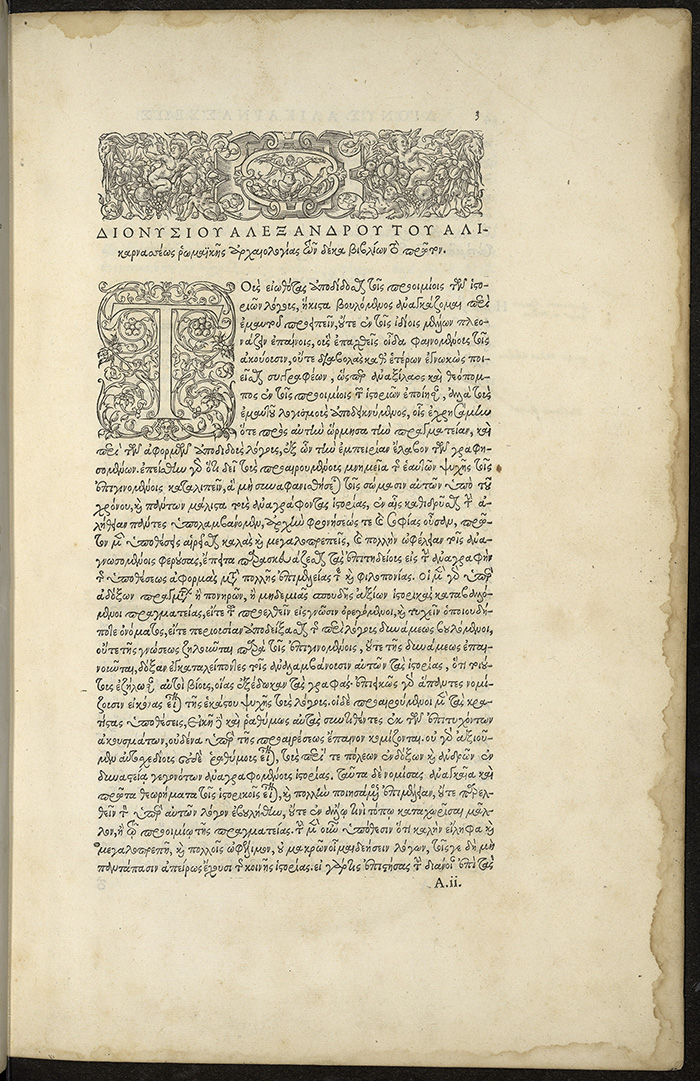 3
ΔΙΟΝΥΣΙΟΥ ΑΛΕΞΑΝΔΡΟΥ ΤΟΥ ΑΛΙ-
καρνασσέως ῥωμαϊκῆς ἀρχαιολογίας τῶν δέκα βιβλίων τὸ πρῶτον.
ΤΟὺς εἰωθότας ἀποδίδοσθαι τοῖς προοιμίοις τῶν ἱστο-
ριῶν λόγους, ἥκιστα βουλόμενος ἀναγκάζομαι περὶ
ἐμαυτοῦ προειπεῖν, οὔτε ἐν τοῖς ἰδίοις μέλλων πλεο-
νάζειν ἐπαίνοις, οὓς ἐπαχθεῖς οἶδα φαινομένους τοῖς
ἀκούουσιν, οὔτε διαβολὰς καθ' ἑτέρων ἐγνωκὼς ποι-
εῖσθαι συγγραφέων, ὥσπερ ἀναξίλαος καὶ θεόπομ-
πος ἐν τοῖς προοιμίοις τῶν ἱστοριῶν ἐποίησαν, ἀλλὰ τοὺς
ἐμαυτοῦ λογισμοὺς ἀποδεικνύμενος, οἷς ἐχρησάμην
ὅτε πρὸς αὐτὴν ὥρμησα τὴν πραγματείαν, καὶ
περὶ τῶν ἀφορμῶν ἀποδιδοὺς λόγους, ἐξ ὧν τὴν ἐμπειρίαν ἔλαβον τῶν γραφη-
σομένων. ἐπείσθην γὰρ ὅτι δεῖ τοὺς προαιρουμένους μνημεῖα τῆς ἑαυτῶν ψυχῆς τοῖς
ἐπιγινομένοις καταλιπεῖν, ἃ μὴ συναφανισθήσεται τοῖς σώμασιν αὐτῶν ὑπὸ τοῦ
χρόνου, καὶ πάντων μάλιστα τοὺς ἀναγράφοντας ἱστορίας, ἐν αἷς καθιδρῦσθαι τὴν ἀ-
λήθειαν πάντες ὑπολαμβάνομεν, ἀρχὴν φρονήσεώς τε καὶ σοφίας οὖσαν, πρῶ-
τον μὲν ὑποθέσεις αἱρεῖσθαι καλὰς καὶ μεγαλοπρεπεῖς, καὶ πολλὴν ὠφέλειαν τοῖς ἀνα-
γνωσομένοις φερούσας, ἔπειτα παρασκευάζεσθαι τὰς ἐπιτηδείους εἰς τὴν ἀναγραφὴν
τῆς ὑποθέσεως ἀφορμὰς μετὰ πολλῆς ἐπιμελείας τε καὶ φιλοπονίας. Οἱ μὲν γὰρ ὑπὲρ
ἀδόξων πραγμάτων ἢ πονηρῶν, ἢ μηδεμιᾶς σπουδῆς ἀξίων ἱστορικὰς καταβαλό-
μενοι πραγματείας, εἴτε τοῦ προελθεῖν εἰς γνῶσιν ὀρεγόμενοι, καὶ τυχεῖν ὁποιουδή-
ποτε ὀνόματος, εἴτε περιουσίαν ἀποδείξασθαι τῆς περὶ λόγους δυνάμεως βουλόμενοι,
οὔτε τῆς γνώσεως ζηλοῦνται παρὰ τοῖς ἐπιγινομένοις, οὔτε τῆς δυνάμεως ἐπαι-
νοῦνται, δόξαν ἐγκαταλείποντες τοῖς ἀναλαμβάνουσιν αὐτῶν τὰς ἱστορίας, ὅτι τοιού-
τους ἐζήλωσαν αὐτοὶ βίους, οἵας ἐξέδωκαν τὰς γραφάς· ἐπιεικῶς γὰρ ἅπαντες νομί-
ζουσιν εἰκόνας εἶναι τῆς ἑκάστου ψυχῆς τοὺς λόγους. οἱ δὲ προαιρούμενοι μὲν τὰς κρα-
τίστας ὑποθέσεις, εἰκῇ δὲ καὶ ῥαθύμως αὐτὰς συντιθέντες ἐκ τῶν ἐπιτυχόντων
ἀκουσμάτων, οὐδένα ὑπὲρ τῆς προαιρέσεως ἔπαινον κομίζονται. οὐ γὰρ ἀξιοῦ-
μεν αὐτοσχεδίους οὐδὲ ῥαθύμους εἶναι, τὰς περί τε πόλεων ἐνδόξων καὶ ἀνδρῶν ἐν
δυναστείᾳ γεγονότων ἀναγραφομένους ἱστορίας. Ταῦτα δὲ νομίσας ἀναγκαῖα καὶ
πρῶτα θεωρήματα τοῖς ἱστορικοῖς εἶναι, καὶ πολλὴν ποιησάμενος ἐπιμέλειαν, οὔτε παρελ-
θεῖν τὸν ὑπὲρ αὐτῶν λόγον ἐβουλήθην, οὔτε ἐν ἄλλῳ τινὶ τόπῳ καταχωρίσαι μᾶλ-
λον, ἢ τῷ προοιμίῳ τῆς πραγματείας. τὴν μὲν οὖν ὑπόθεσιν ὅτι καλὴν εἴληφα καὶ
μεγαλοπρεπῆ, καὶ πολλοῖς ὠφέλιμον, οὐ μακρῶν οἶμαι δεήσειν λόγων, τοῖς γε δὴ μὴ
παντάπασιν ἀπείρως ἔχουσι τῆς κοινῆς ἱστορίας. εἰ γάρ τις ἐπιστήσας τὴν διάνοιαν ἐπὶ τὰς
A.ii.